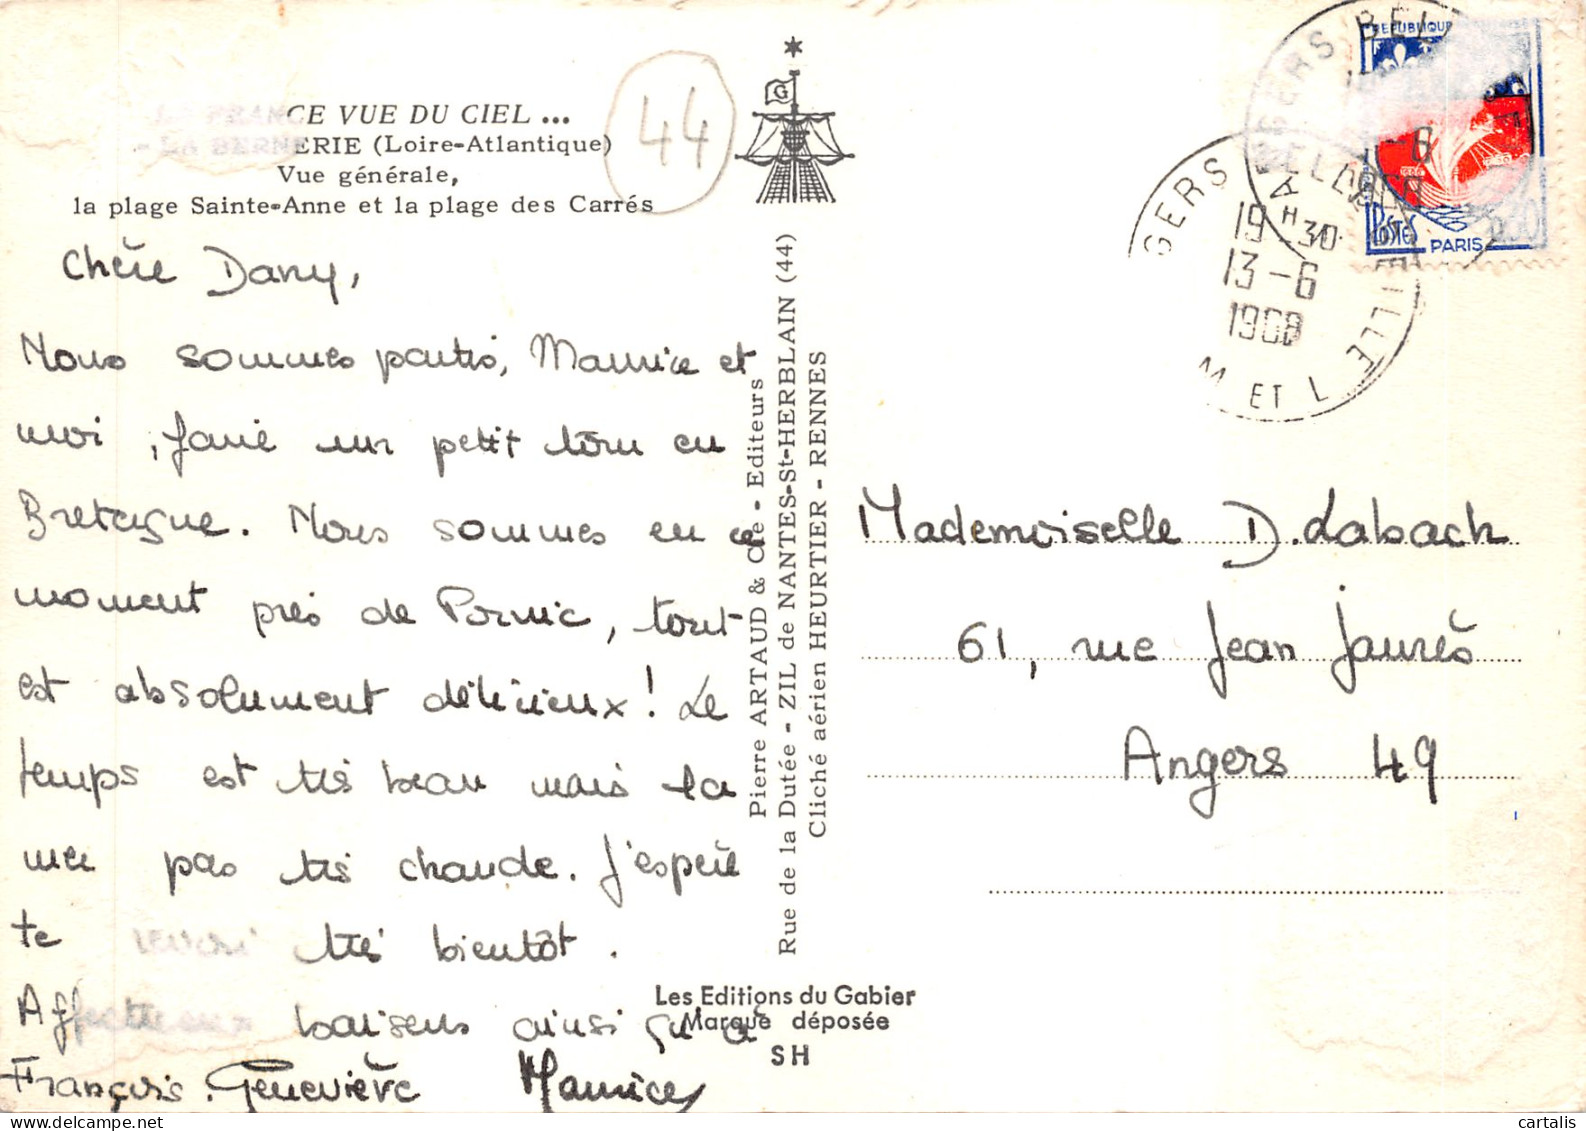 LA FRANCE VUE DU CIEL ...
- LA BERNERIE (Loire-Atlantique)
Vue générale,
la plage Sainte-Anne et la plage des Carrés
44
G
Chère Dany,
Nous sommes partis, Maurice et
moi, faire un petit tour en
Bretagne. Nous sommes en ce
moment près de Pornic, tout
est absolument délicieux ! Le
temps est très beau mais la
mer pas très chaude. J'espère
te revoir très bientôt.
Affectueux baisers ainsi qu'à
François. Geneviève Maurice
Pierre ARTAUD & Cie - Editeurs
Rue de la Dutée - ZIL de NANTES-St-HERBLAIN (44)
Cliché aérien HEURTIER - RENNES
Les Editions du Gabier
Marque déposée
SH
REPUBLIQUE
POSTES 0,30
PARIS
GERS BEL
19 H 30
13-6
1968
M ET L
Mademoiselle D. Labach
61, rue Jean Jaurès
Angers 49
cartalis